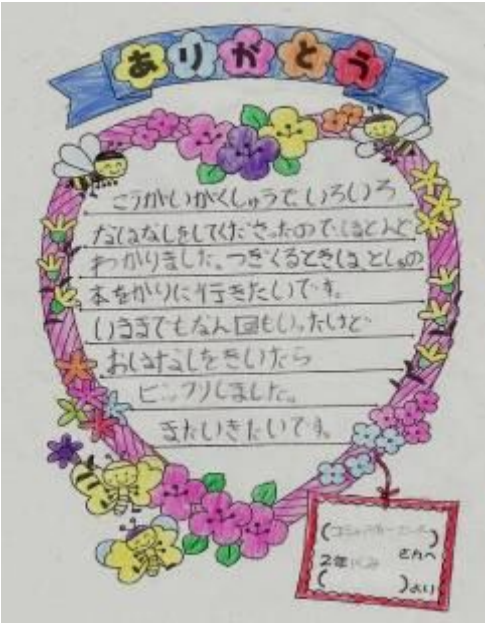 ありがとう
こうがいがくしゅうで、いろいろ
なはなしをしてくださったので、ほとんど
わかりました。つぎくるときは、としょの
本をかりに行きたいです。
いままでもなん回もいったけど
おはなしをきいたら
ビックリしました。
またいきたいです。
さんへ
2年
より